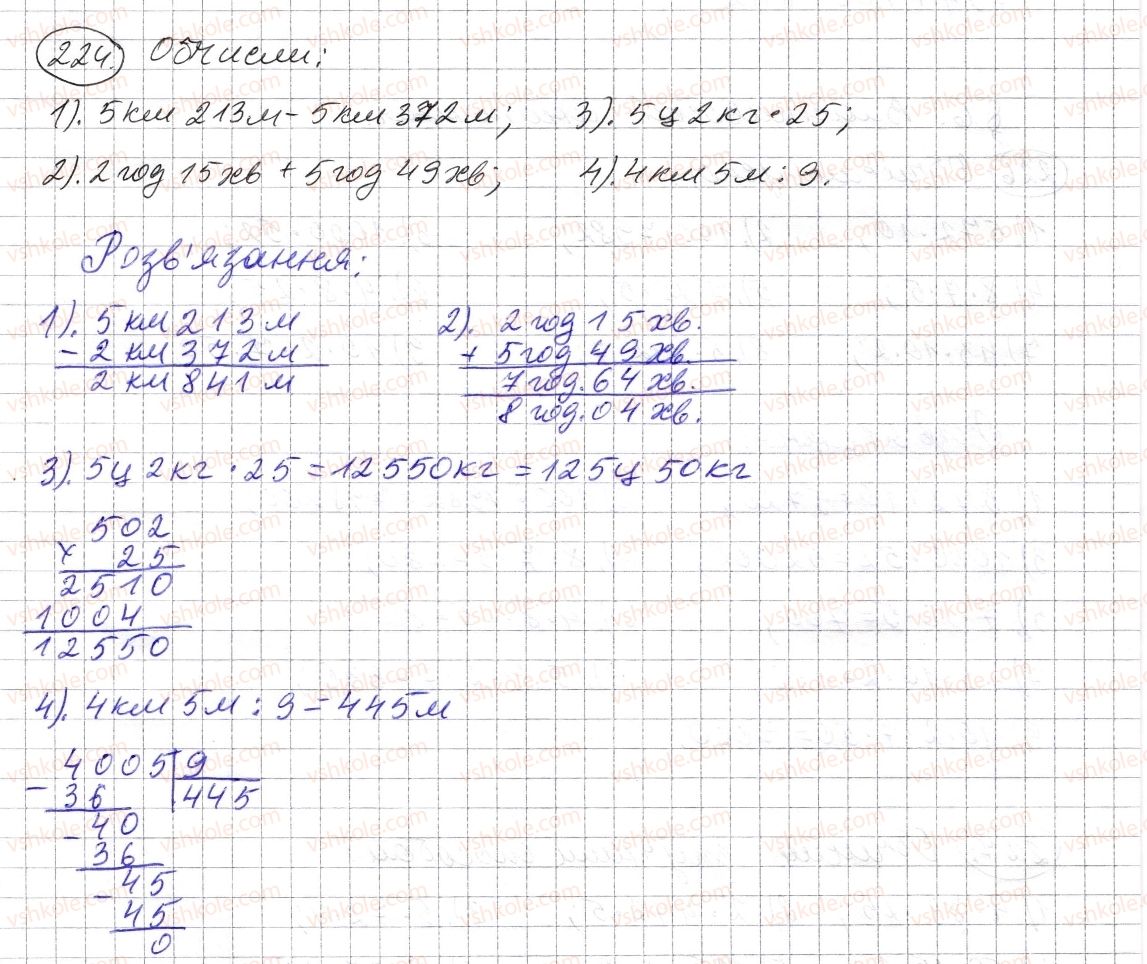 224. Обчисли:
1). 5км 213м - 5км 372м; 3). 5ц 2кг · 25;
2). 2 год 15хв + 5 год 49хв; 4). 4км 5м : 9.
Розв'язання:
1). 5 км 213 м
- 2 км 372 м
2 км 841 м
2). 2 год 15 хв.
+ 5 год 49 хв.
7 год. 64 хв.
8 год. 04 хв.
3). 5ц 2кг · 25 = 12550кг = 125ц 50кг
502
x 25
2510
1004
12550
4). 4км 5м : 9 = 445м
4005 | 9
- 36 | 445
- 40
36
- 45
45
0